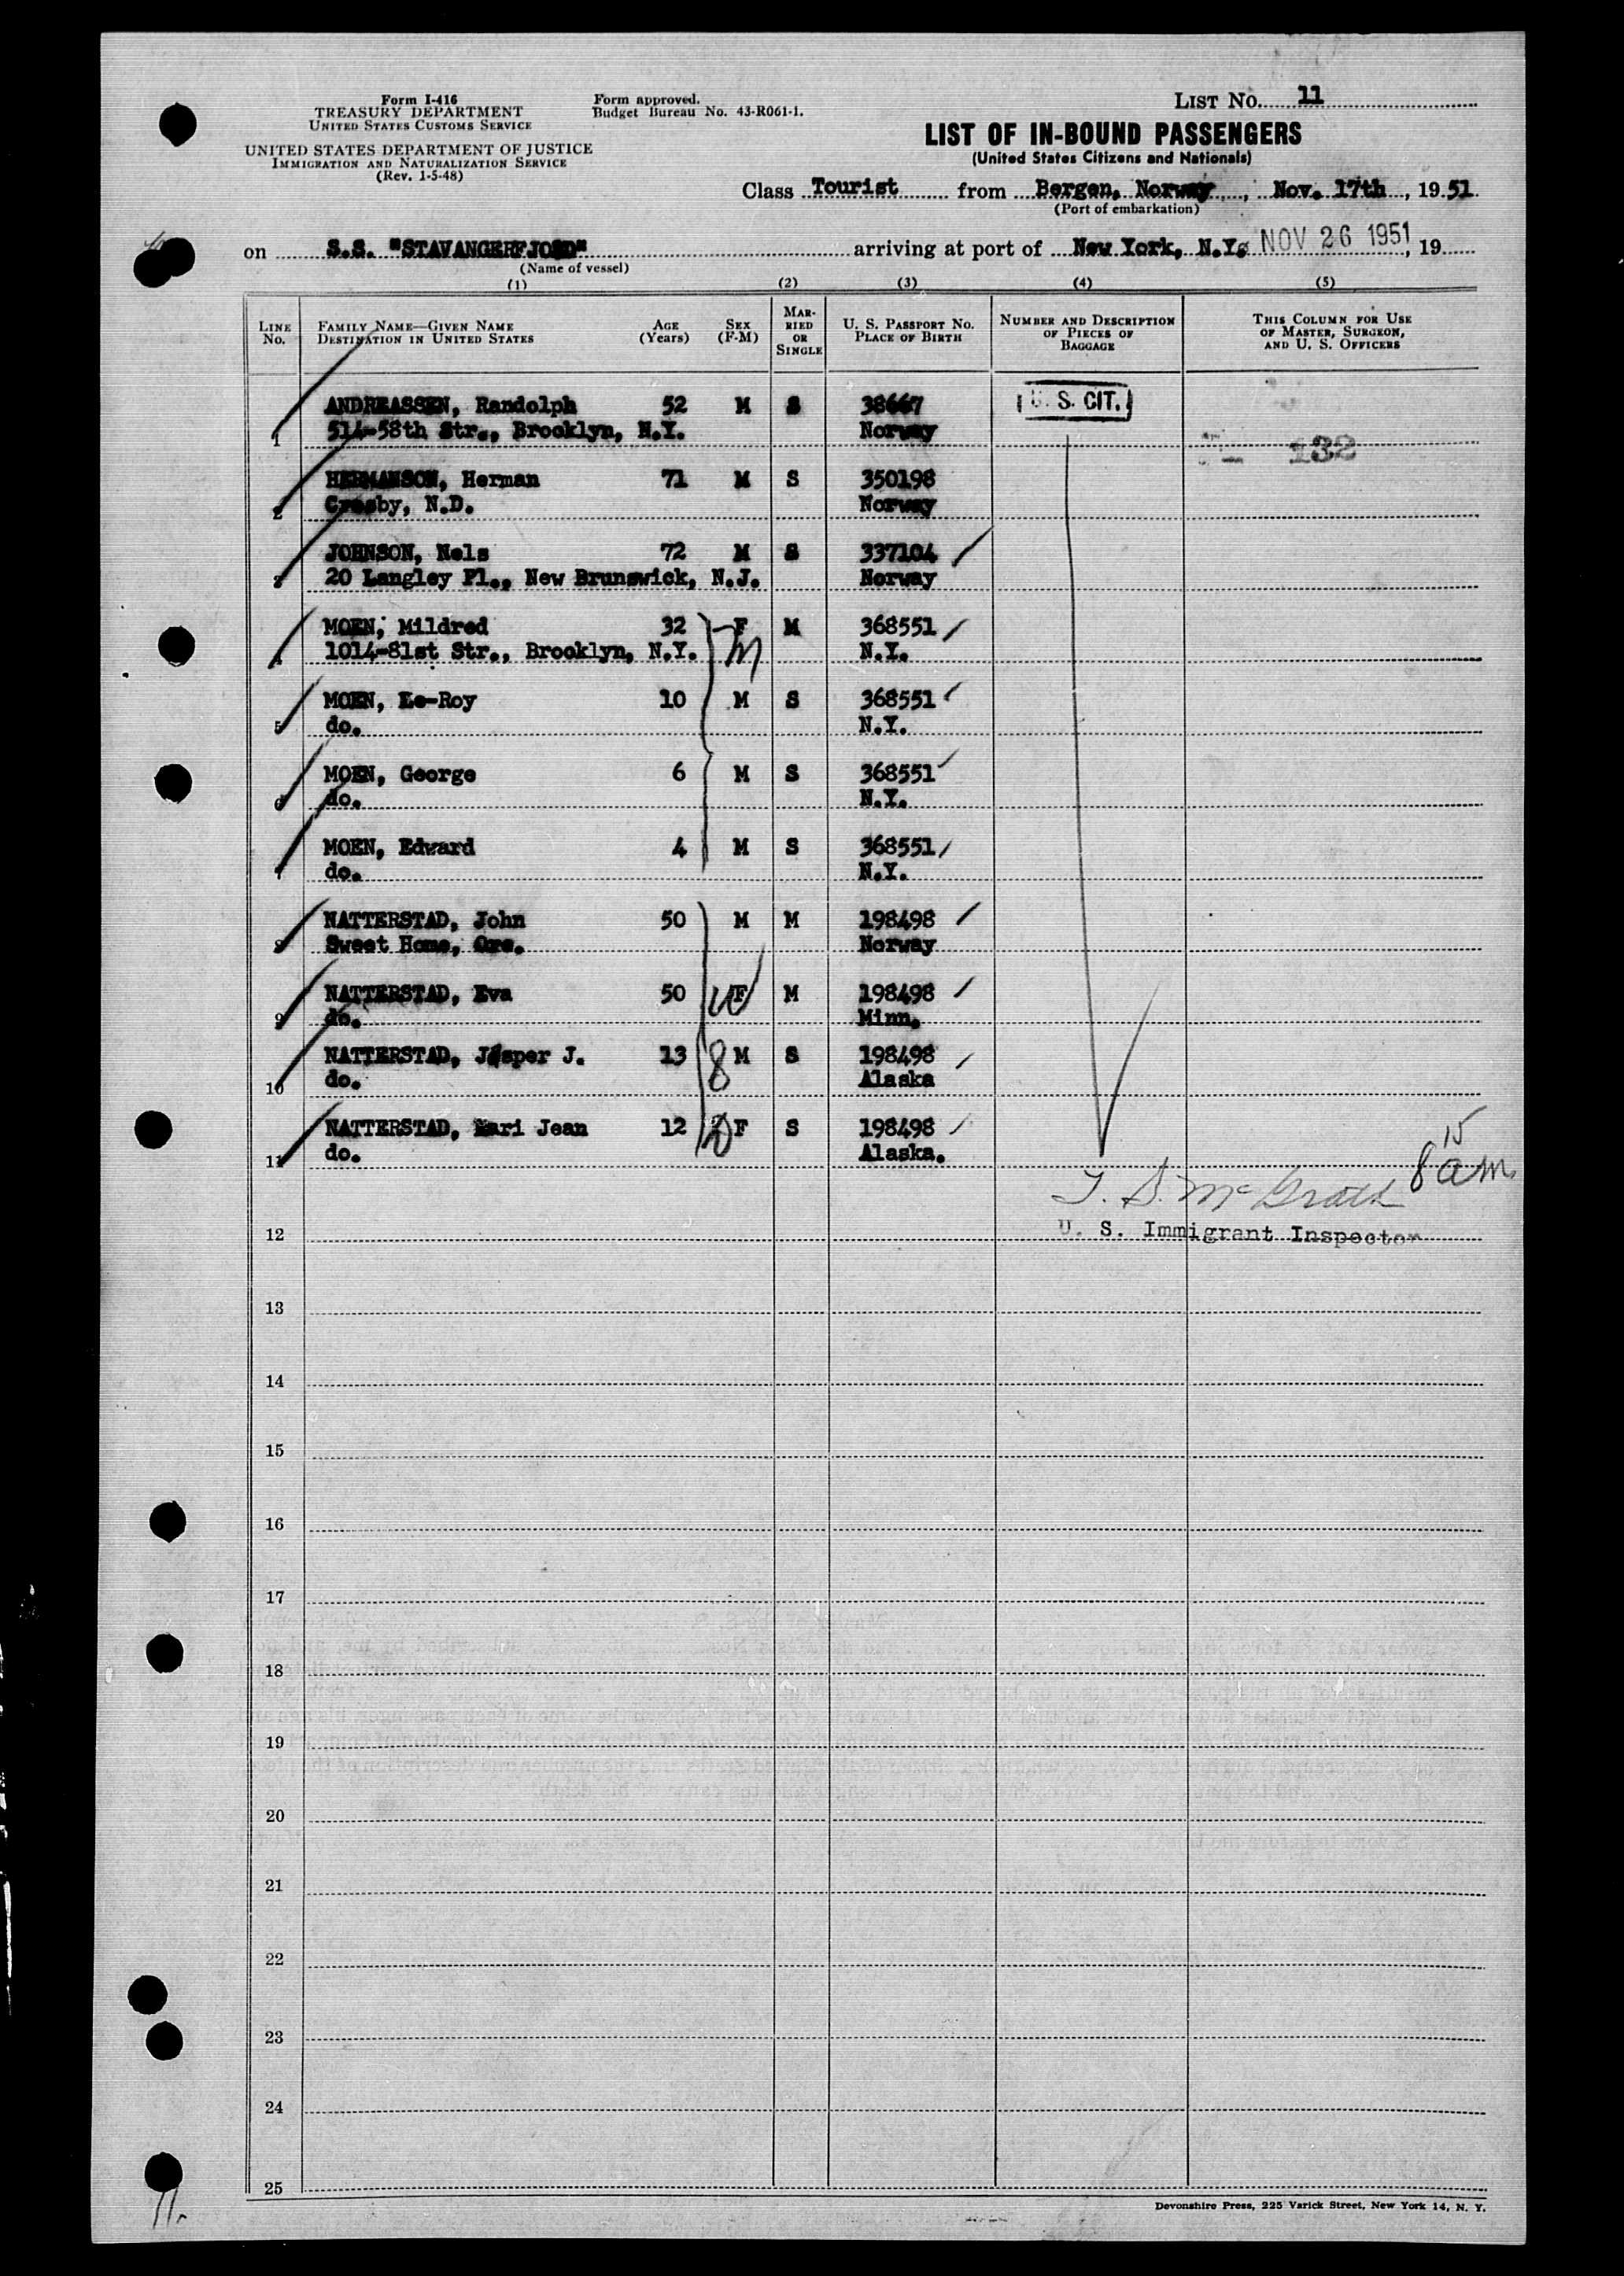 Form I-416
TREASURY DEPARTMENT
UNITED STATES CUSTOMS SERVICE
UNITED STATES DEPARTMENT OF JUSTICE
IMMIGRATION AND NATURALIZATION SERVICE
(Rev. 1-5-48)
Form approved.
Budget Bureau No. 43-R061-1.
LIST No. 11
LIST OF IN-BOUND PASSENGERS
(United States Citizens and Nationals)
Class Tourist from Bergen, Norway, Nov. 17th, 1951
(Port of embarkation)
on S.S. "STAVANGERFJORD" arriving at port of New York, N.Y. NOV 26 1951, 19
(Name of vessel)
(1) (2) (3) (4) (5)
LINE No. FAMILY NAME—GIVEN NAME DESTINATION IN UNITED STATES AGE (Years) SEX (F-M) MARRIED OR SINGLE U. S. PASSPORT NO. PLACE OF BIRTH NUMBER AND DESCRIPTION OF PIECES OF BAGGAGE THIS COLUMN FOR USE OF MASTER, SURGEON, AND U. S. OFFICERS
ANDREASSEN, Randolph 52 M S 38667 U. S. CIT.
1 514-58th Str., Brooklyn, N.Y. Norway 132
HERMANSON, Herman 71 M S 350198
2 Crosby, N.D. Norway
JOHNSON, Nels 72 M S 337104
3 20 Langley Pl., New Brunswick, N.J. Norway
MOEN, Mildred 32 F M 368551
4 1014-81st Str., Brooklyn, N.Y. M N.Y.
MOEN, Le-Roy 10 M S 368551
5 do. N.Y.
MOEN, George 6 M S 368551
6 do. N.Y.
MOEN, Edward 4 M S 368551
7 do. N.Y.
NATTERSTAD, John 50 M M 198498
8 Sweet Home, Ore. Norway
NATTERSTAD, Eva 50 F M 198498
9 do. Minn.
NATTERSTAD, Jesper J. 13 8 M S 198498
10 do. Alaska
NATTERSTAD, Kari Jean 12 F S 198498
11 do. Alaska.
T. S. McGrath 8 15 am
12 U. S. Immigrant Inspector
13
14
15
16
17
18
19
20
21
22
23
24
25
Devonshire Press, 225 Varick Street, New York 14, N. Y.
11.